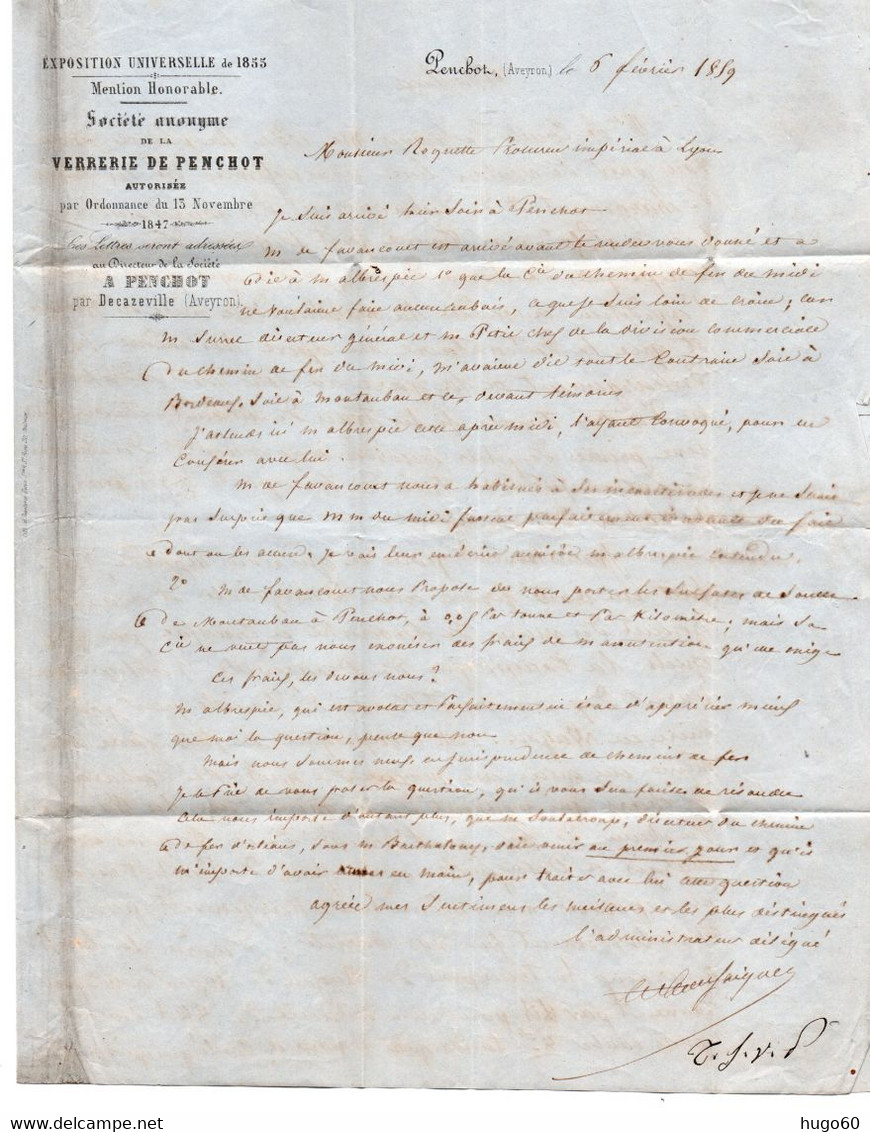 EXPOSITION UNIVERSELLE de 1855
Mention Honorable.
Société anonyme
DE LA
VERRERIE DE PENCHOT
AUTORISÉE
par Ordonnance du 13 Novembre
1847
Les Lettres seront adressées
au Directeur de la Société
A PENCHOT
par Decazeville (Aveyron).
Penchot, (Aveyron) le 6 février 1859
Monsieur Roquette Procureur impérial à Lyon
Je suis arrivé hier soir à Penchot
M de favancourt est arrivé avant le rendez vous donné et a
dit à M albrespie 1o que la Cie du chemin de fer du midi
ne voulait faire aucun rabais, ce que je suis loin de croire; car
M Surrel directeur général et M Petit chef de la division commerciale
du chemin de fer du midi, m'avaient dit tout le contraire soit à
Bordeaux, soit à montauban et devant témoins
J'attends ici M albrespie cette après midi, l'ayant convoqué, pour en
conférer avec lui.
M de favancourt nous a habitués à ses inexactitudes et je ne serais
pas surpris que MM du midi fussent parfaitement innocents du fait
dont on les accuse, je vais leur en écrire M albrespie entendu.
2o M de favancourt nous propose de nous porter les sulfates de soude
de Montauban à Penchot, à 0,05 par tonne et par Kilomètre; mais sa
Cie ne veut pas nous exonérer des frais de manutention qu'elle exige
Ces frais, les devons nous?
M albrespie, qui est avocat et parfaitement en état d'apprécier mieux
que moi la question, pense que non.
Mais nous sommes neufs en jurisprudence de chemins de fer
Je te prie de vous poser la question, qu'il vous sera facile de résoudre
Cela nous importe d'autant plus, que M Soulacroup, directeur du chemin
de fer d'orléans, sous M Bartholony, doit venir au premier jour et qu'il
m'importe d'avoir armes en main, pour traiter avec lui cette question
agréez mes sentimens les meilleurs et les plus distingués
l'administrateur délégué
T. S. V. P
hugo60